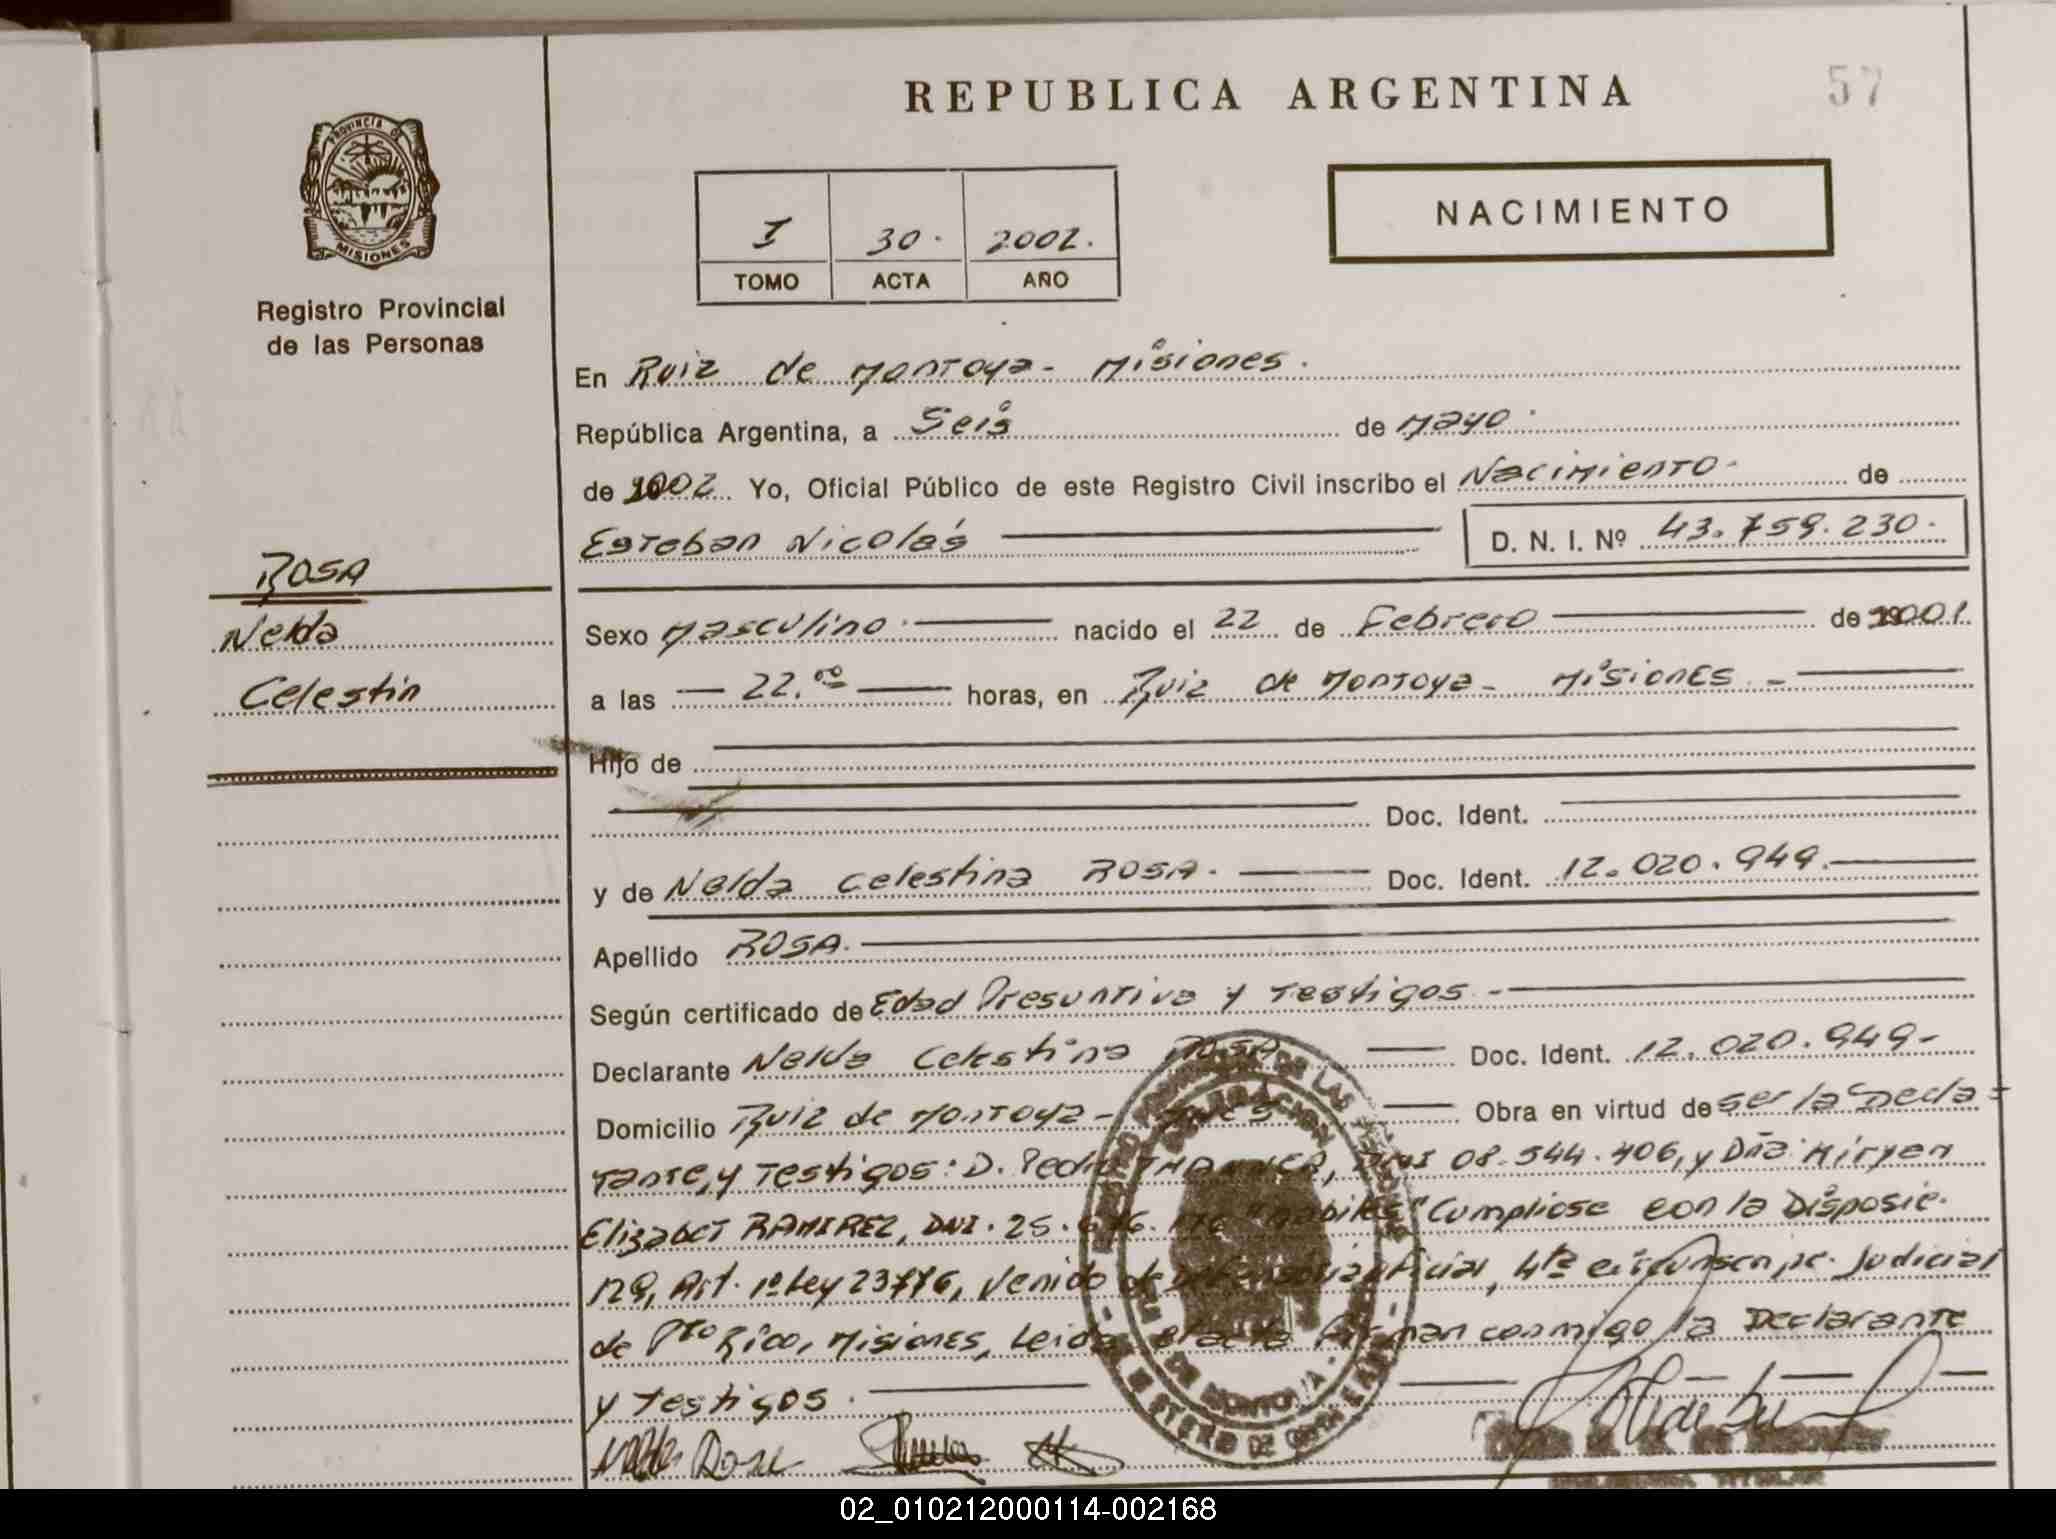 REPUBLICA ARGENTINA
57
PROVINCIA DE
MISIONES
Registro Provincial
de las Personas
I 30. 2002.
TOMO ACTA AÑO
NACIMIENTO
En Ruiz de Montoya - Misiones.
República Argentina, a Seis de Mayo.
de 2002. Yo, Oficial Público de este Registro Civil inscribo el Nacimiento. de
Esteban Nicolás D. N. I. Nº 43.759.230.
ROSA
Nelda
Celestin
Sexo Masculino. nacido el 22 de Febrero de 2001.
a las 22.00 horas, en Ruiz de Montoya - Misiones. -
Hijo de
Doc. Ident.
y de Nelda Celestina ROSA. Doc. Ident. 12.020.949.
Apellido ROSA.
Según certificado de Edad Presuntiva y Testigos. -
Declarante Nelda Celestina ROSA Doc. Ident. 12.020.949-
Domicilio Ruiz de Montoya - Obra en virtud de ser la Decla-
rante, y Testigos: D. Pedro DNI 08.544.406, y Dña Miryen
Elizabet RAMIREZ, DNI. 25. "Habiles" Cumpliose con la Disposic.
129, Art. 1º Ley 23776, Venido de Judicial, 4ta Circunscripc. Judicial
de Pto Rico, Misiones, Leida el acta firman conmigo la Declarante
y Testigos.
02_010212000114-002168